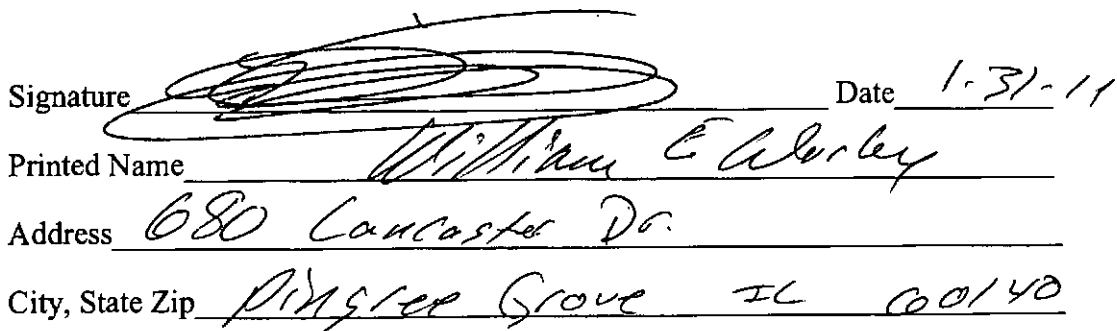 Signature Date 1-31-11
Printed Name William E
Address 680 Lancaster Dr.
City, State Zip Pingree Grove IL 60140